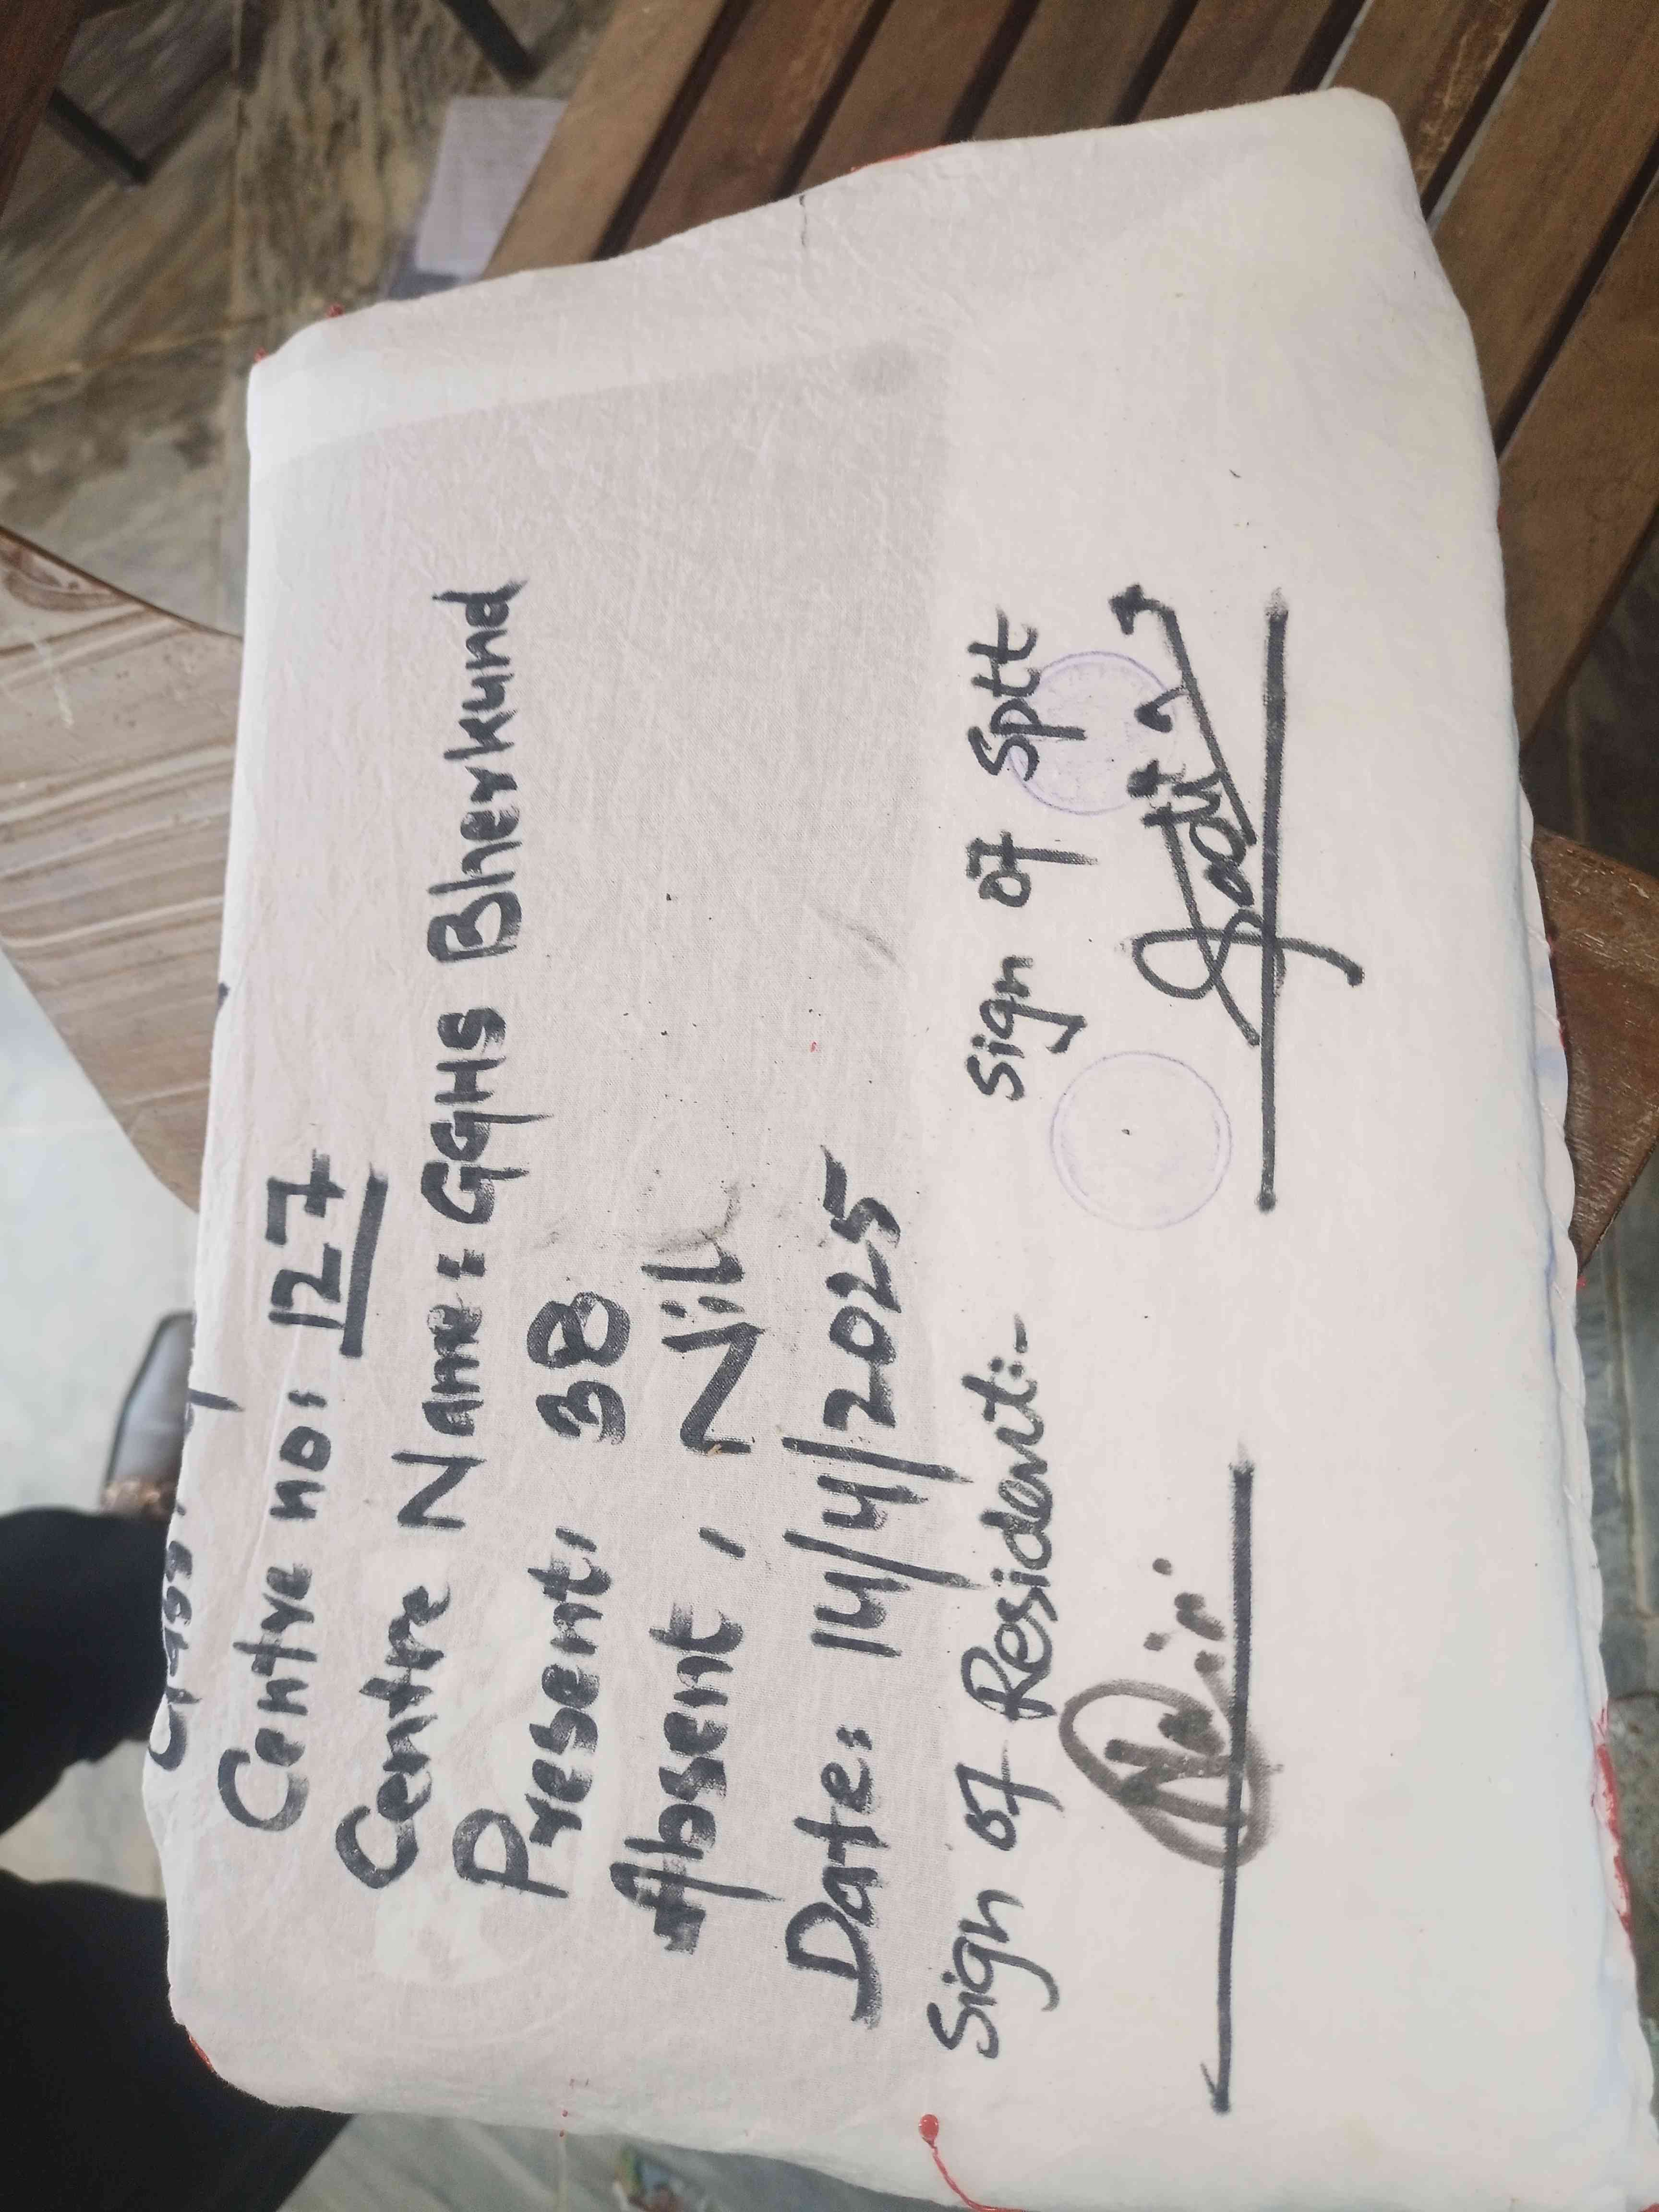 Centre no: 127
Centre Name: GGHS Bherkund
Present: 38
Absent, Nil
Date: 14/4/2025
Sign of Resident:-
Sign of Sptt